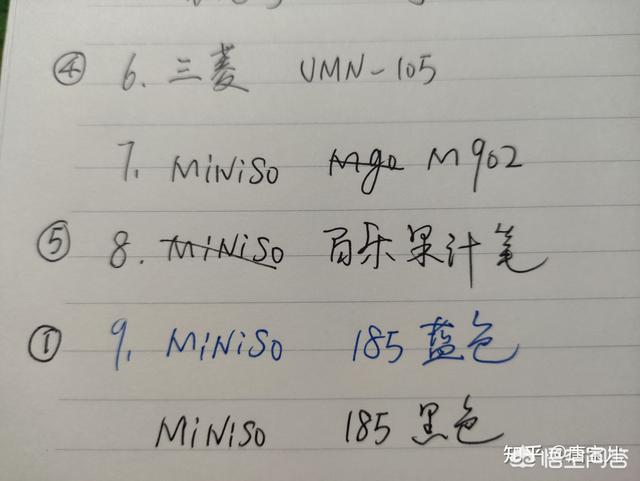 ④ 6. 三菱 UMN-105
7. MiNiSo M90 M902
⑤ 8. MiNiSo 百乐果汁笔
① 9. MiNiSo 185 蓝色
MiNiSo 185 黑色
知乎
悟空问答